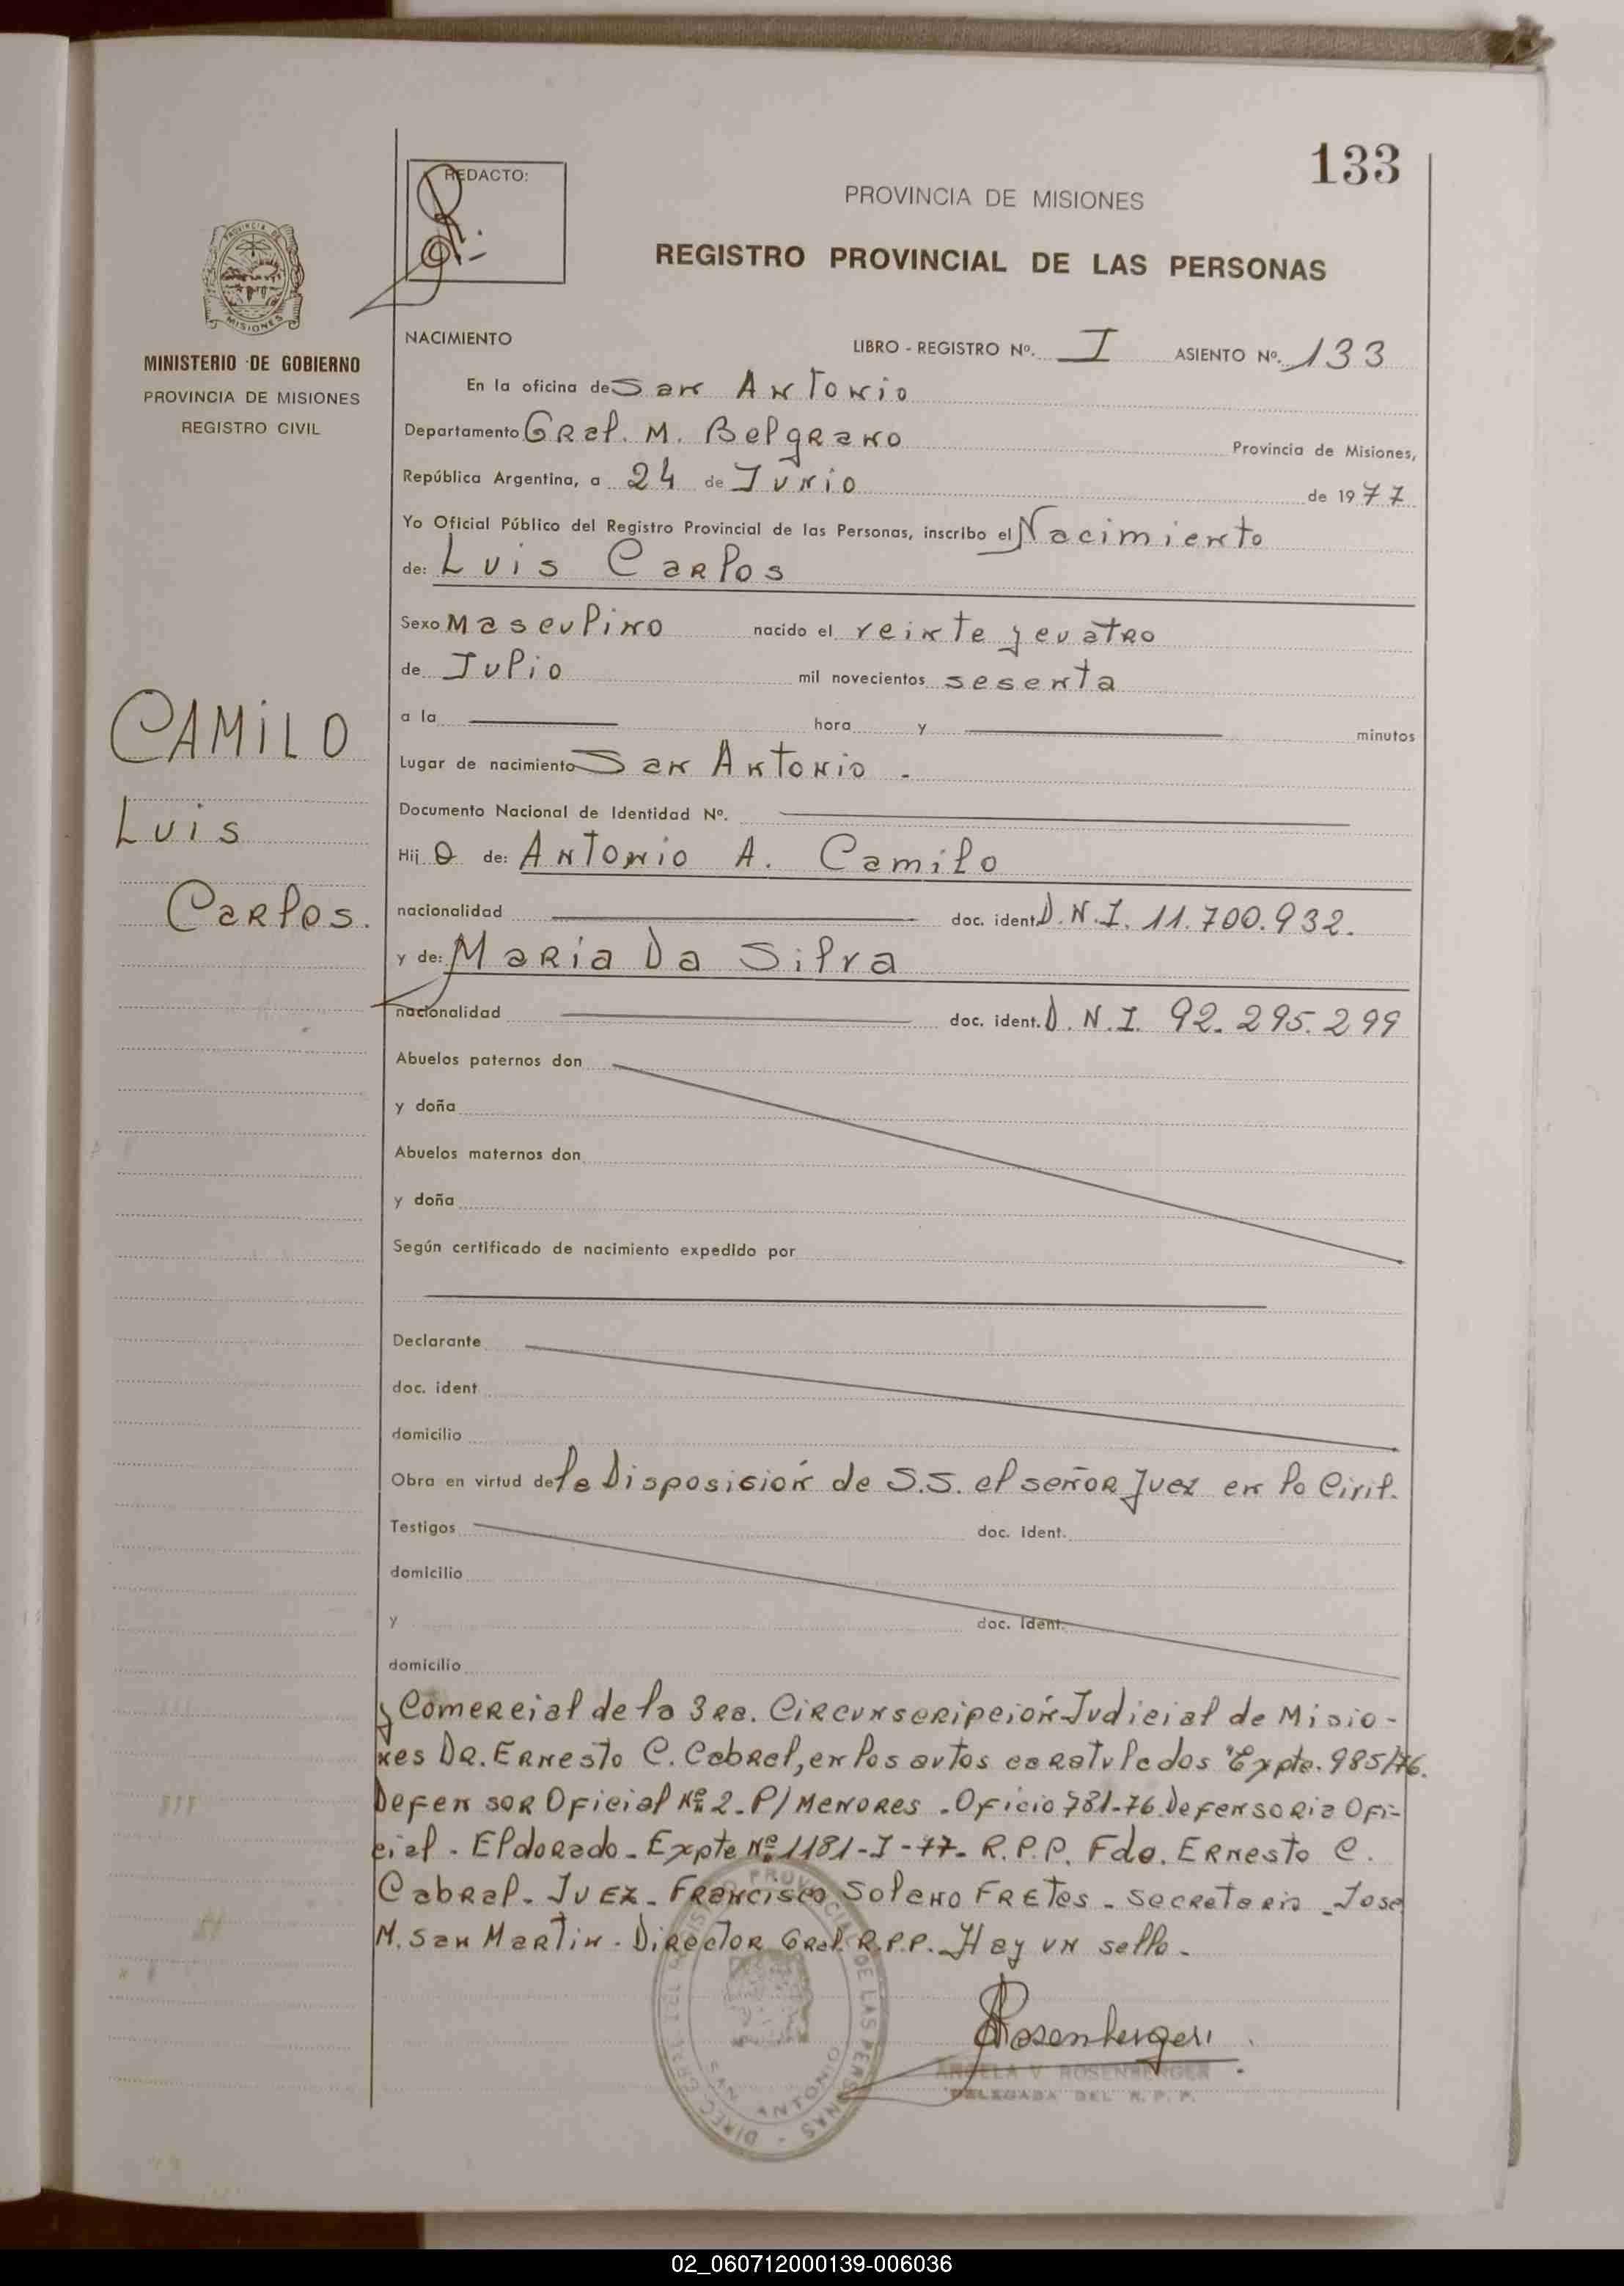 133
REDACTO:
PROVINCIA DE MISIONES
REGISTRO PROVINCIAL DE LAS PERSONAS
PROVINCIA DE
MISIONES
MINISTERIO DE GOBIERNO
PROVINCIA DE MISIONES
REGISTRO CIVIL
NACIMIENTO LIBRO - REGISTRO Nº. I ASIENTO Nº. 133
En la oficina de San Antonio
Departamento Gral. M. Belgrano Provincia de Misiones,
República Argentina, a 24 de Junio de 1977
Yo Oficial Público del Registro Provincial de las Personas, inscribo el Nacimiento
de: Luis Carlos
Sexo Masculino nacido el veinte y cuatro
de Julio mil novecientos sesenta
a la hora y minutos
Lugar de nacimiento San Antonio -
Documento Nacional de Identidad Nº.
Hijo de: Antonio A. Camilo
nacionalidad doc. ident. D.N.I. 11.700.932.
y de: Maria Da Silva
nacionalidad doc. ident. D.N.I. 92.295.299
CAMILO
Luis
Carlos.
Abuelos paternos don
y doña
Abuelos maternos don
y doña
Según certificado de nacimiento expedido por
Declarante
doc. ident
domicilio
Obra en virtud de la Disposición de S.S. el señor Juez en lo Civil.
Testigos doc. ident.
domicilio
y doc. ident.
domicilio
y Comercial de la 3ra. Circunscripción Judicial de Misio-
nes Dr. Ernesto C. Cabral, en los autos caratulados "Expte. 985/76.
Defensor Oficial Nº 2. P/ Menores - Oficio 781-76. Defensoria Ofi-
cial - Eldorado - Expte Nº 1181-I-77- R.P.P. Fdo. Ernesto C.
Cabral - Juez - Francisco Solano Fretes - Secretario - Jose
M. San Martin - Director Gral. R.P.P. Hay un sello -
Rosenberger
ANGELA V. ROSENBERGER
DELEGADA DEL R.P.P.
DIREC. GRAL. DEL REGISTRO PROVINCIAL DE LAS PERSONAS
SAN ANTONIO
02_060712000139-006036